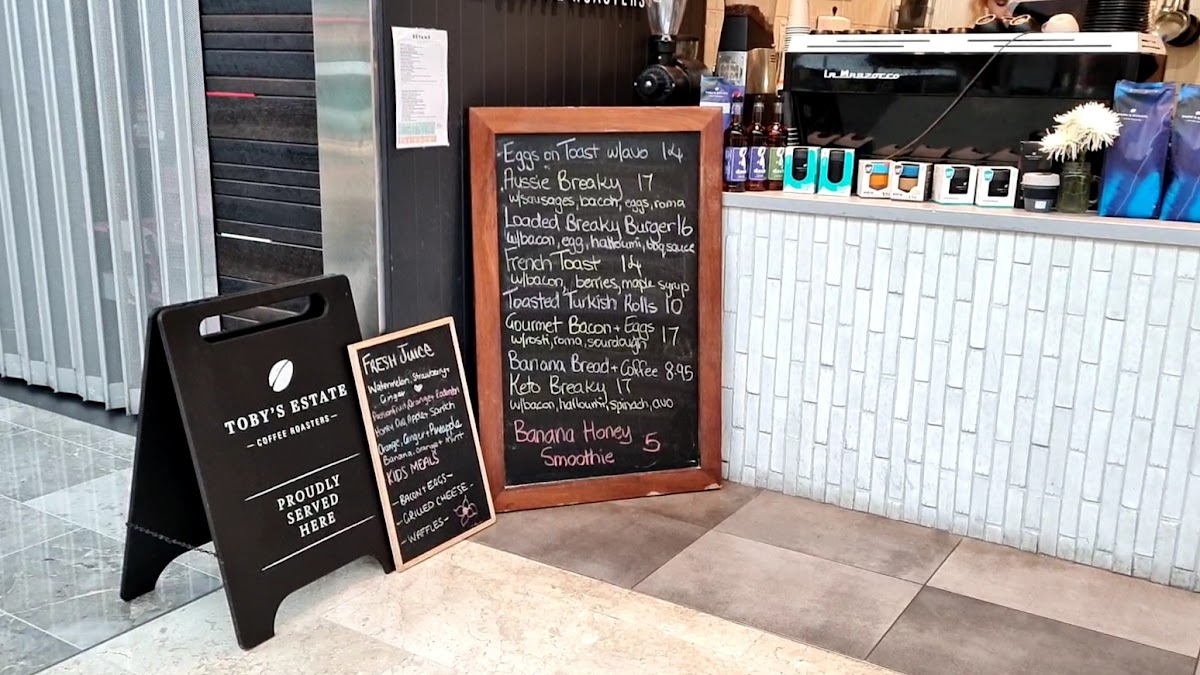 ROASTERS
La Marzocco
Eggs on Toast w/avo 14
Aussie Breaky 17
w/sausages, bacon, eggs, roma
Loaded Breaky Burger 16
w/bacon, egg, halloumi, bbq sauce
French Toast 14
w/bacon, berries, maple syrup
Toasted Turkish Rolls 10
Gourmet Bacon + Eggs 17
w/rosti, roma, sourdough
Banana Bread + Coffee 8.95
Keto Breaky 17
w/bacon, halloumi, spinach, avo
Banana Honey
Smoothie 5
FRESH JUICE
Watermelon, Strawberry +
Ginger
Passionfruit, Orange +
Honey Dew, Apple +
Orange, Ginger + Pineapple
Banana, Orange + Mint
KIDS MEALS
- BACON + EGGS -
- GRILLED CHEESE -
- WAFFLES -
TOBY'S ESTATE
- COFFEE ROASTERS -
PROUDLY
SERVED
HERE